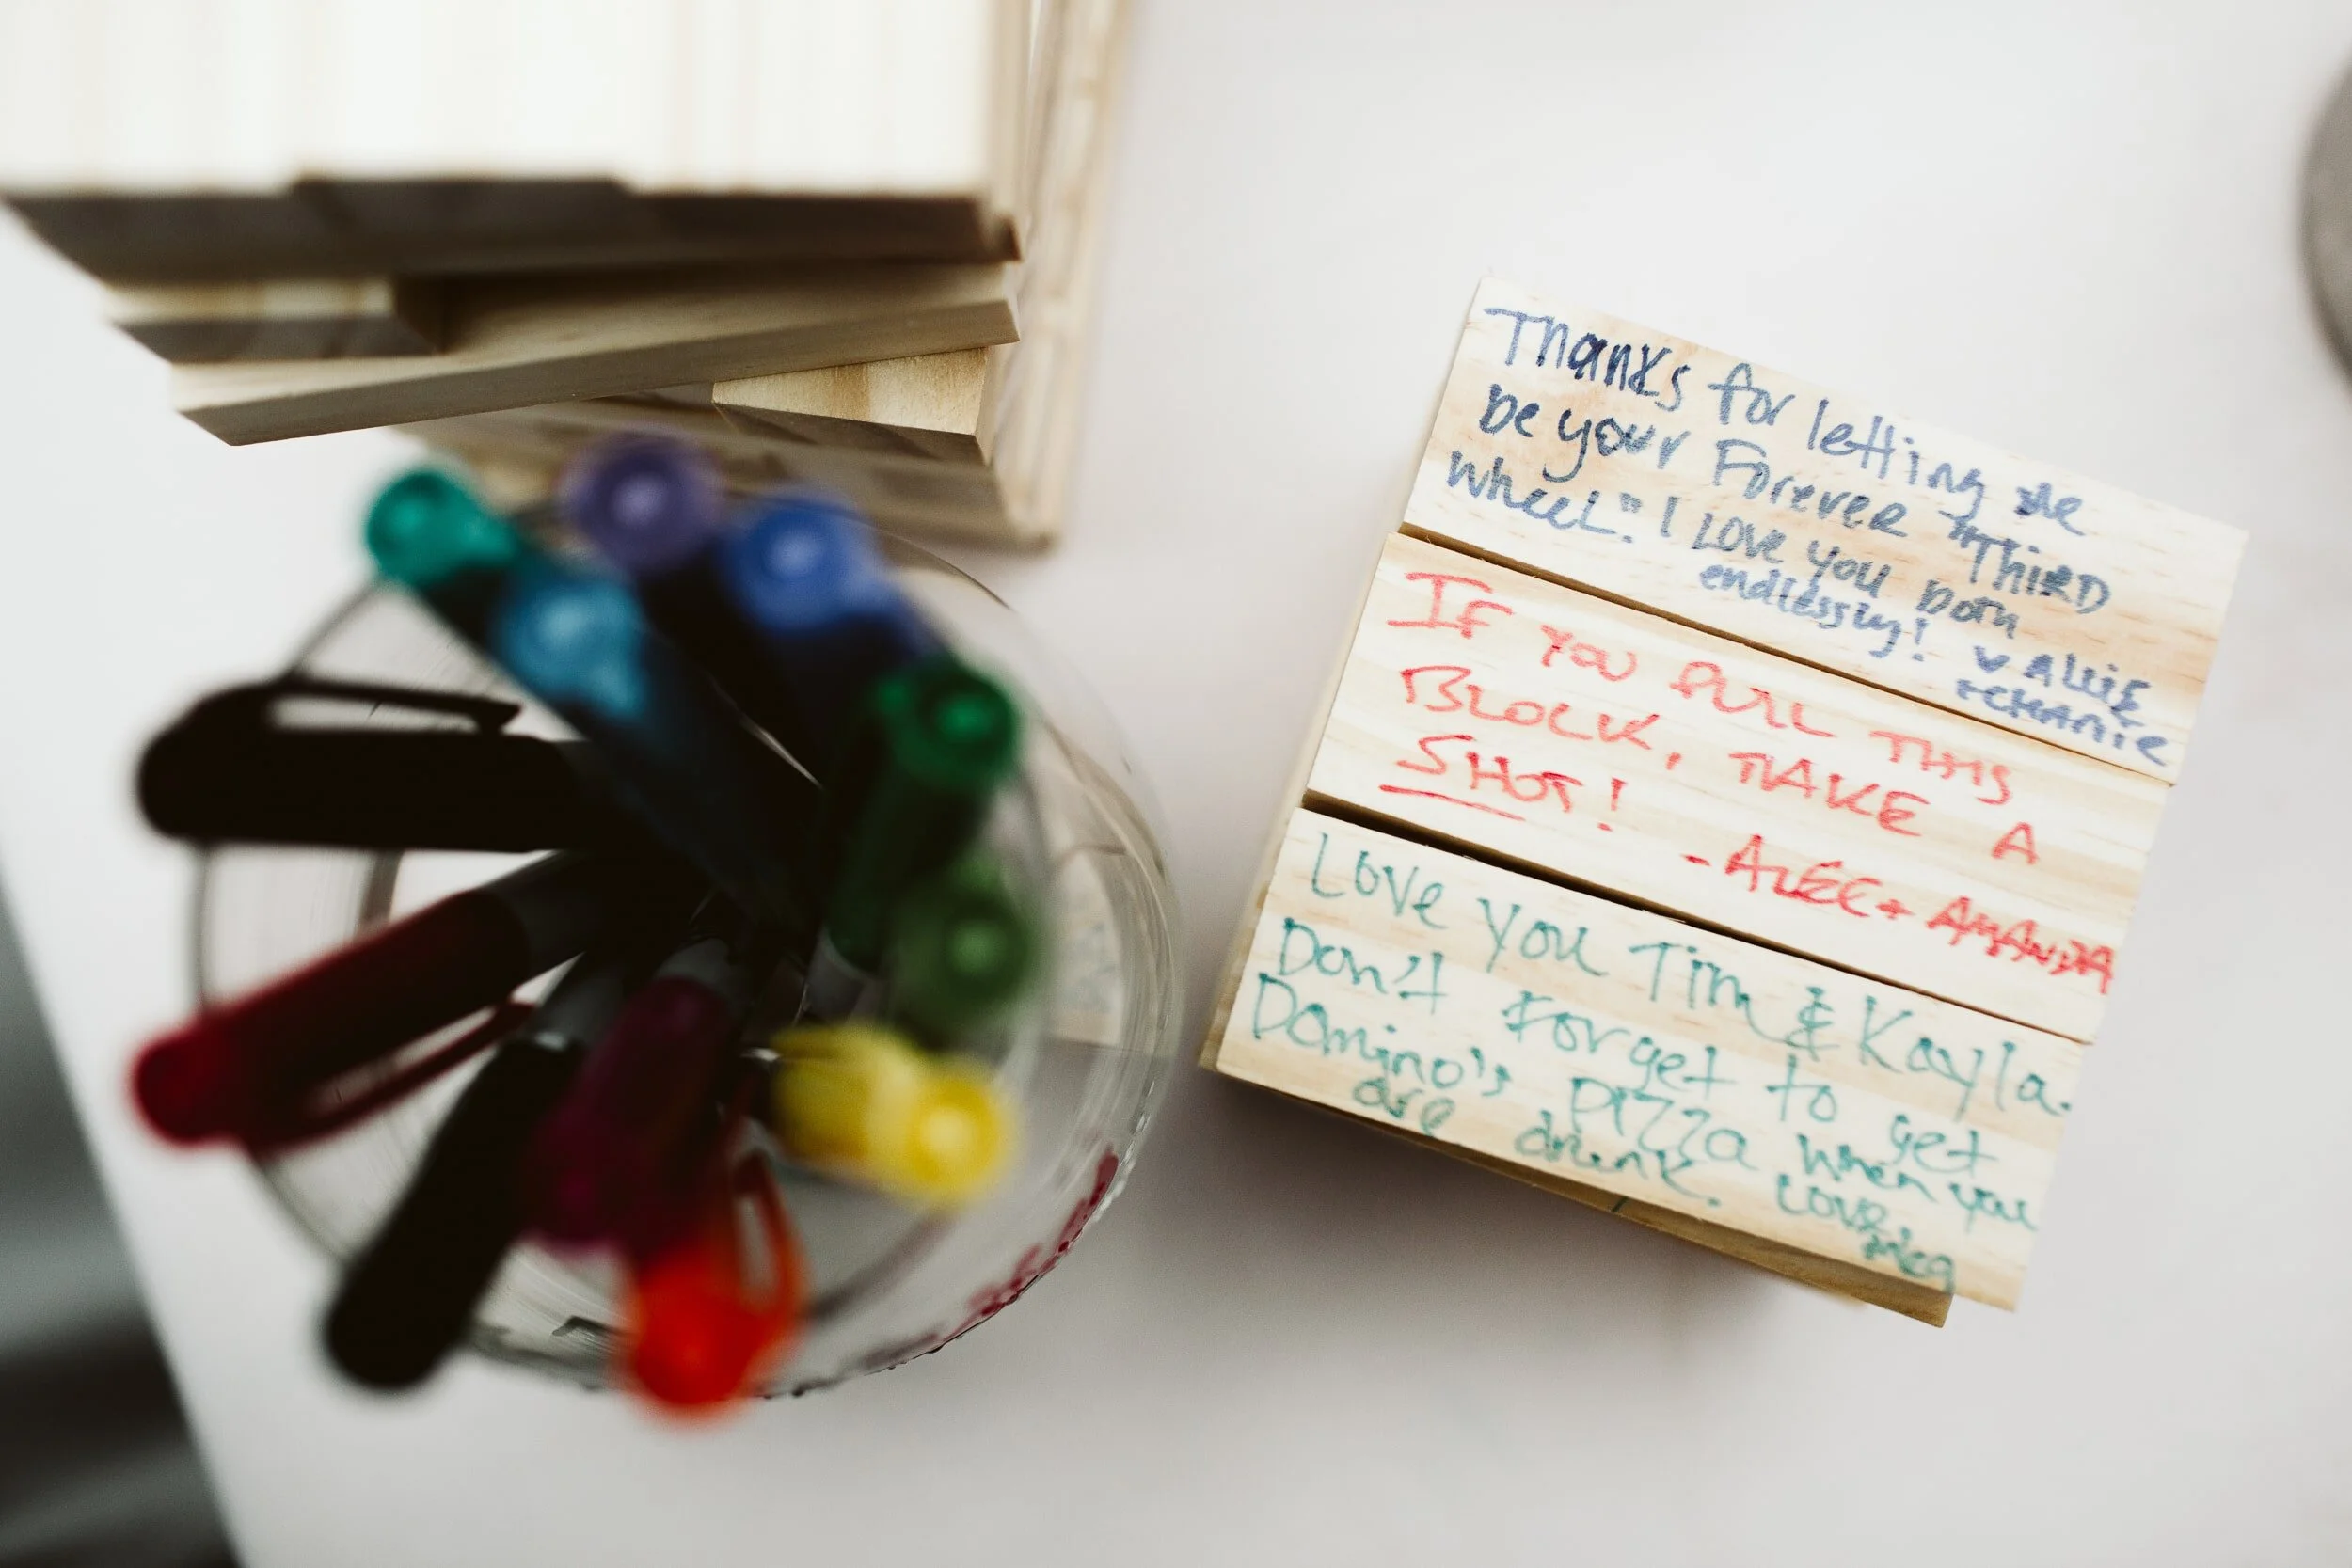 Thanks for letting me
be your Forever "THIRD
wheel". I Love you both
endlessly! ♥ Allie
+CHARLIE
IF YOU PULL THIS
BLOCK, TAKE A
SHOT!
-ALEC + AMANDA
Love you Tim & Kayla.
Don't forget to get
Domino's Pizza when you
are drunk. Love,
Meg